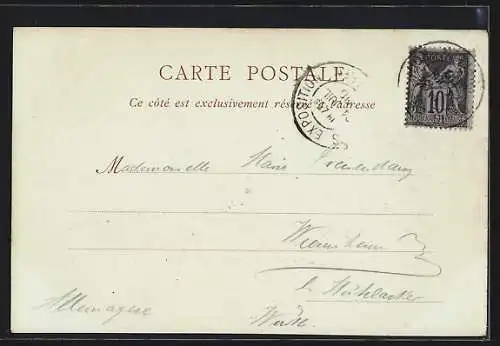 CARTE POSTALE
Ce côté est exclusivement réservé à l'adresse
EXPOSITION
POSTE
10
Mademoiselle Marie
Wiernsheim
b. Mühlacker
Allemagne
Württ.